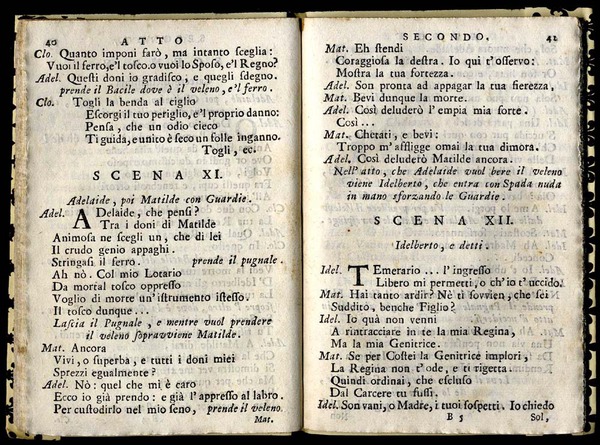 40 ATTO
Clo. Quanto imponi farò, ma intanto sceglia:
Vuoi il ferro, e'l tosco. o vuoi lo Sposo, e'l Regno?
Adel. Questi doni io gradisco, e quegli sdegno.
prende il Bacile dove è il veleno, e'l ferro.
Clo. Togli la benda al ciglio
E scorgi il tuo periglio, e'l proprio danno:
Pensa, che un odio cieco
Ti guida, e unito è seco un folle inganno.
Togli, ec.
SCENA XI.
Adelaide, poi Matilde con Guardie.
Adel. ADelaide, che pensi?
Tra i doni di Matilde
Animosa ne scegli un, che di lei
Il crudo genio appaghi.
Stringasi il ferro. prende il pugnale.
Ah nò. Col mio Lotario
Da mortal tosco oppresso
Voglio di morte un'istrumento istesso.
Il tosco dunque...
Lascia il Pugnale, e mentre vuol prendere
il veleno sopravviene Matilde.
Mat. Ancora
Vivi, o superba, e tutti i doni miei
Sprezzi egualmente?
Adel. Nò: quel che mi è caro
Ecco io già prendo: e già l'appresso al labro.
Per custodirlo nel mio seno, prende il veleno.
Mat.
SECONDO. 41
Mat. Eh stendi
Coraggiosa la destra. Io qui t'osservo:
Mostra la tua fortezza.
Adel. Son pronta ad appagar la tua fierezza,
Mat. Bevi dunque la morte.
Adel. Così deluderò l'empia mia forte.
Così...
Mat. Chetati, e bevi:
Troppo m'affligge omai la tua dimora.
Adel. Così deluderò Matilde ancora.
Nell'atto, che Adelaide vuol bere il veleno
viene Idelberto, che entra con Spada nuda
in mano sforzando le Guardie.
SCENA XII.
Idelberto, e detti.
Idel. TEmerario ... l'ingresso
Libero mi permetti, o ch'io t'uccido.
Mat. Hai tanto ardir? Nè ti sovvien, che sei
Suddito, benche Figlio?
Idel. Io quà non venni
A rintracciare in te la mia Regina,
Ma la mia Genitrice.
Mat. Se per Costei la Genitrice implori,
La Regina non t'ode, e ti rigetta.
Quindi ordinai, che escluso
Dal Carcere tu fussi.
Idel. Son vani, o Madre, i tuoi sospetti. Io chiedo
B 5 Sol,